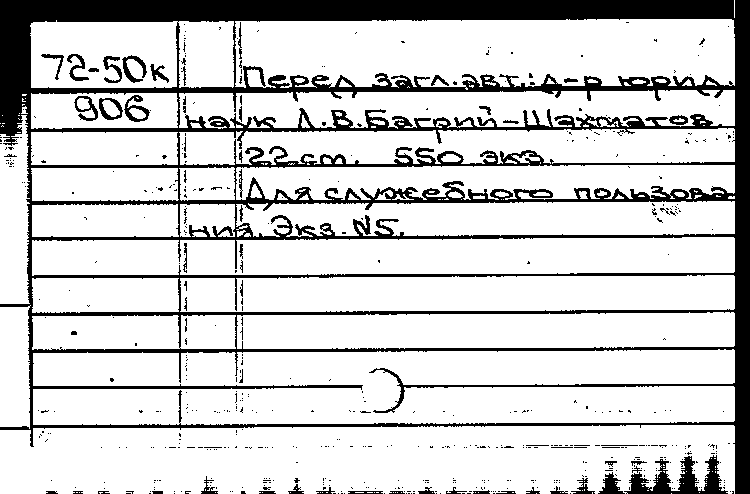 72-50к Перед загл.авт.:д-р юрид.
906 наук Л.В.Багрий-Шахматов.
22 см. 550 экз.
Для служебного пользова-
ния. Экз. №5.